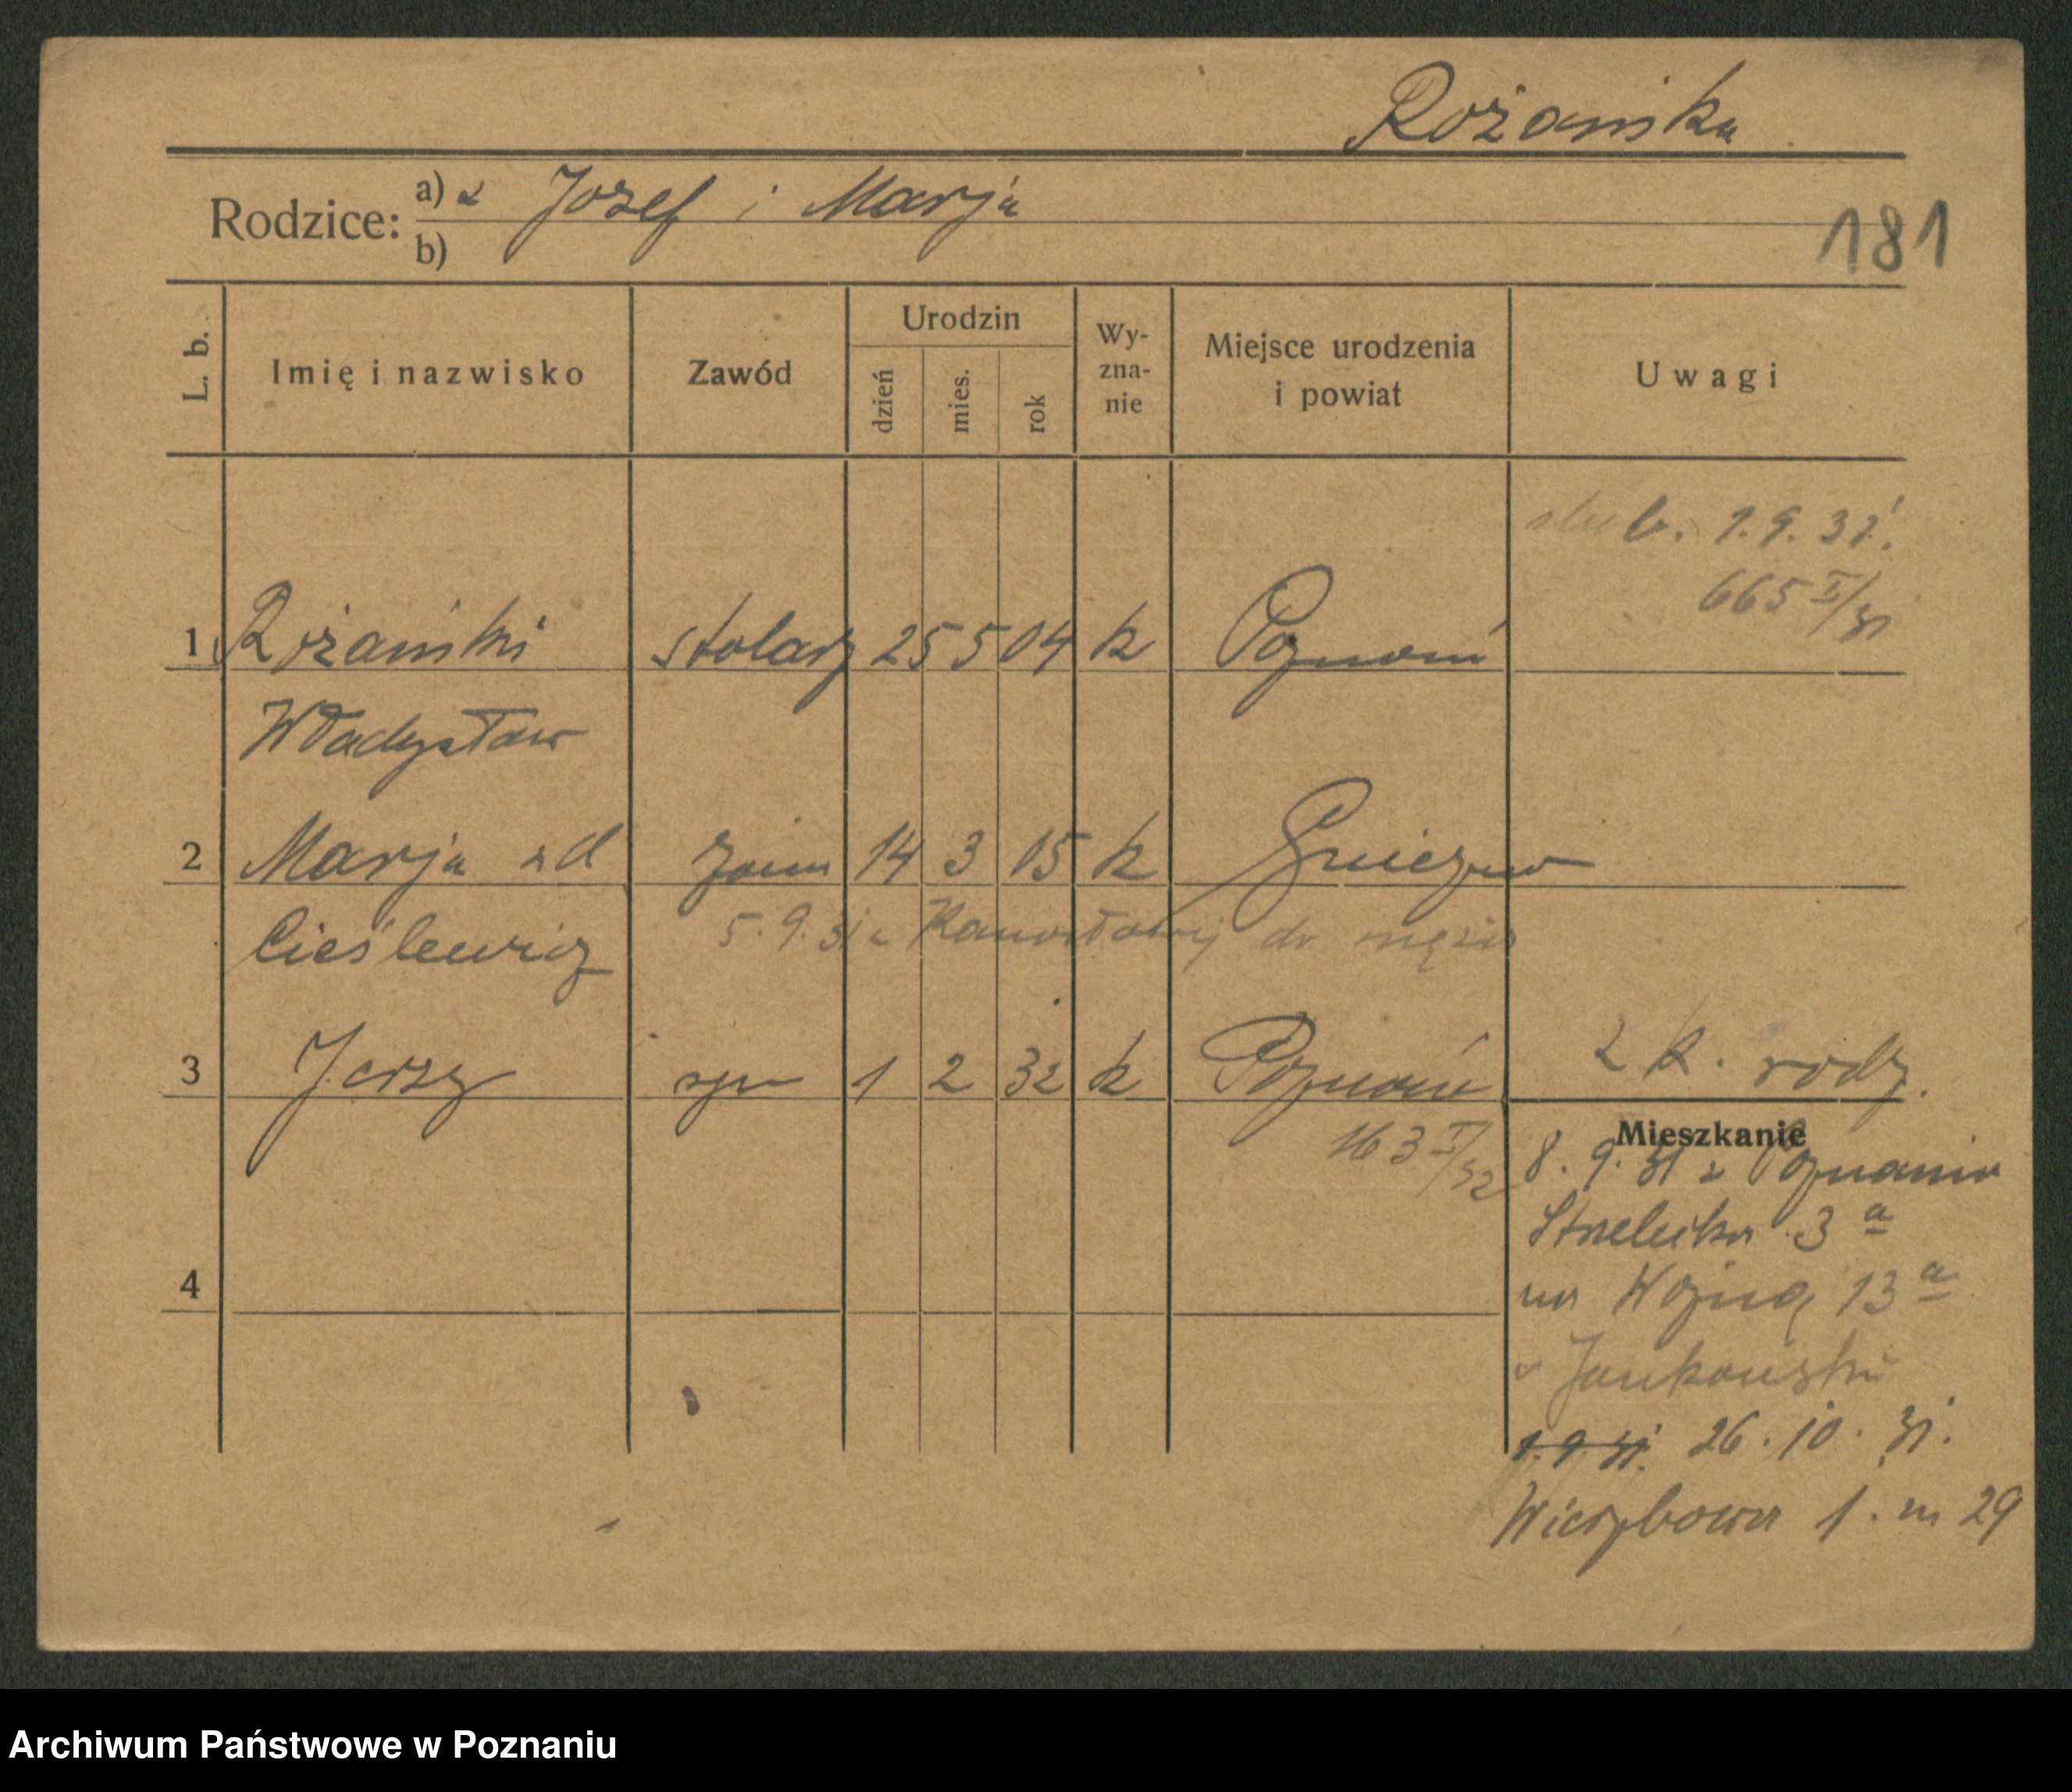 Rożańska
Rodzice: a) z Jozef i Marja
b)
181
L. b.
Imię i nazwisko
Zawód
Urodzin
dzień
mies.
rok
Wy-
zna-
nie
Miejsce urodzenia
i powiat
Uwagi
ślub. 1.9.31.
665 I/31
1 Rożański stolarz 25 5 04 k Poznań
Władysław
2 Marja zd 14 3 15 k Gniezno
Cieślewicz 5.9.31 z do męża
3 Jerzy syn 1 2 32 k Poznań 2 k. rodz.
163 I/32
Mieszkanie
8.9.31 z Poznania
Strzelecka 3 a
4
na 13 a
Jankowski
1.9.31. 26.10.31.
Wierzbowa 1. m 29
Archiwum Państwowe w Poznaniu